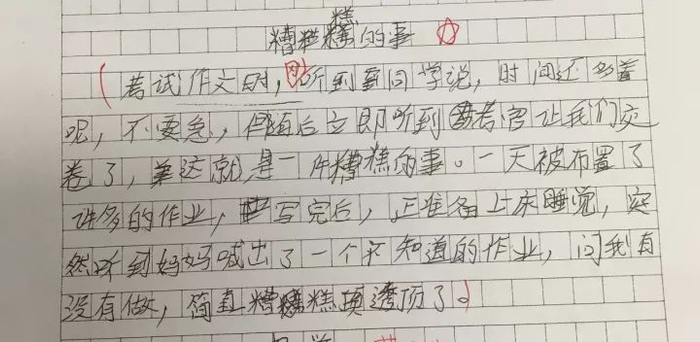 糟糕的事
考试作文时，听到同学说，时间还多着
呢，不要急，但随后立即听到考官让我们交
卷了，这就是一件糟糕的事。一天被布置了
许多的作业，写完后，正准备上床睡觉，突
然听到妈妈喊出了一个不知道的作业，问我有
没有做，简直糟糕透顶了。